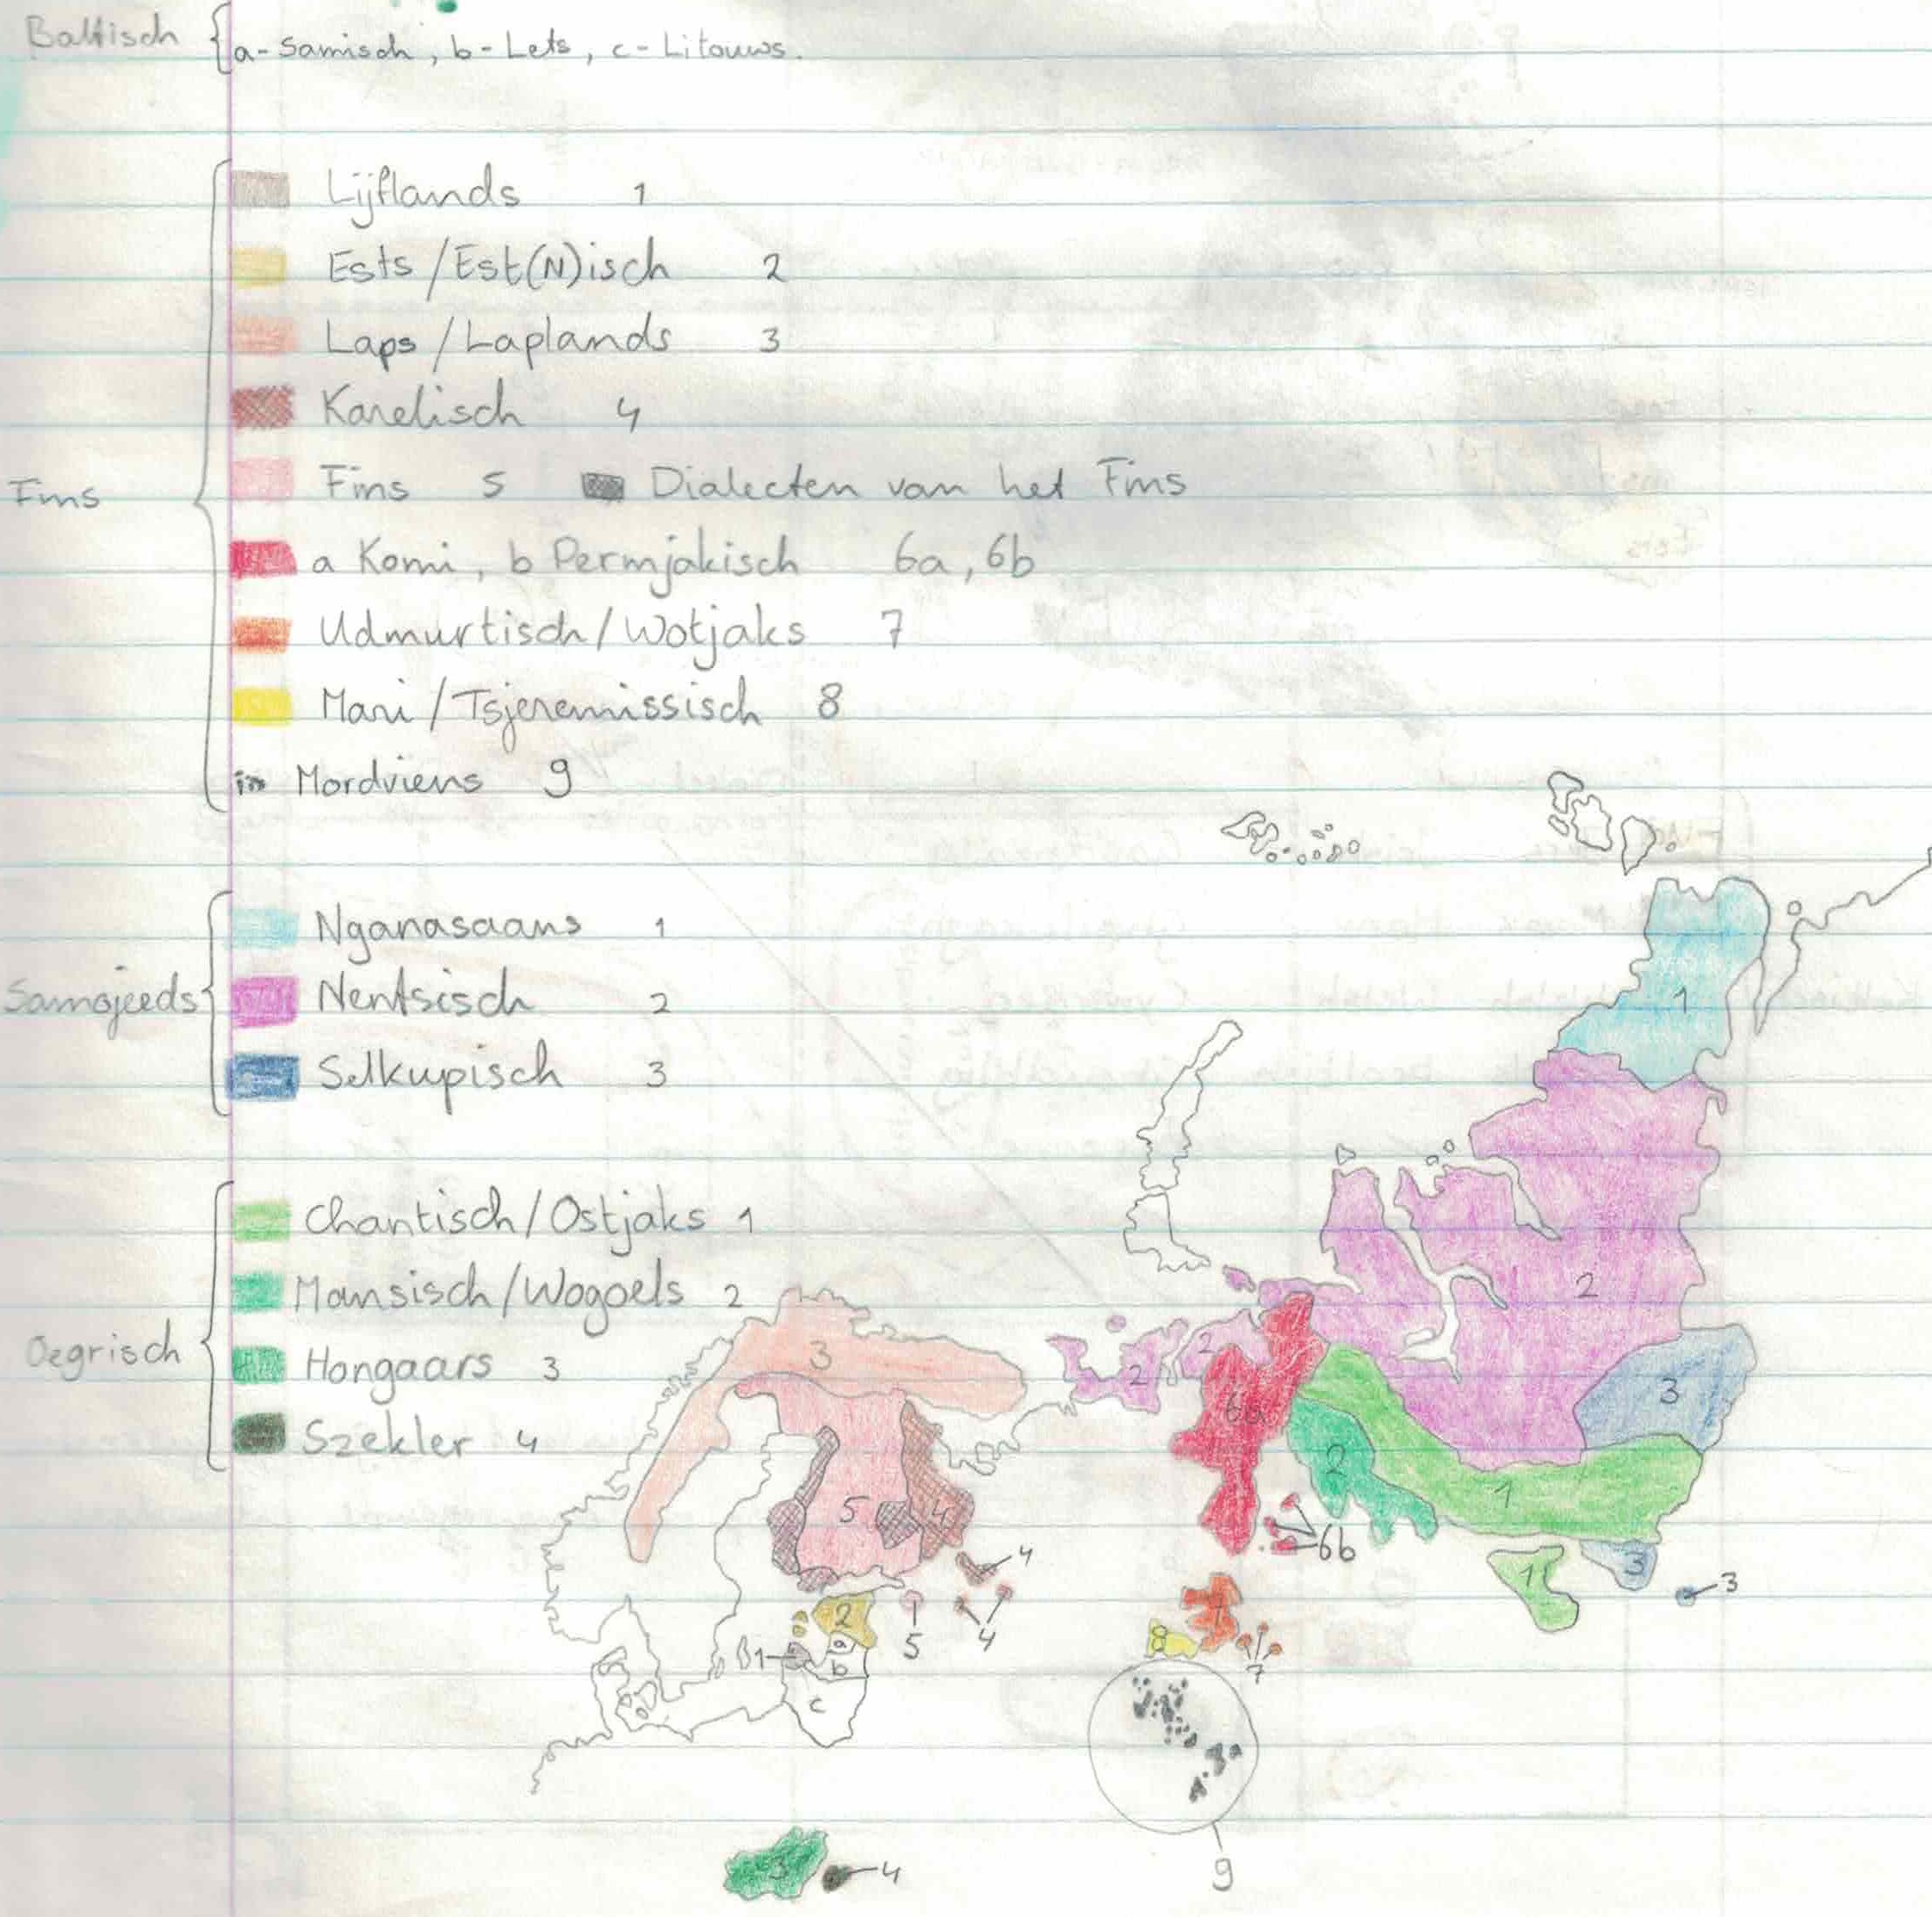 Baltisch
a - Samisch, b - Lets, c - Litouws.
Fins
Lijflands 1
Ests / Est(N)isch 2
Laps / Laplands 3
Karelisch 4
Fins 5 Dialecten van het Fins
a Komi, b Permjakisch 6a, 6b
Udmurtisch / Wotjaks 7
Mari / Tsjeremissisch 8
Mordviens 9
Samojeeds
Nganasaans 1
Nentsisch 2
Selkupisch 3
Oegrisch
Chantisch / Ostjaks 1
Mansisch / Wogoels 2
Hongaars 3
Szekler 4
1
2
2
2
3
3
6a
2
5
4
1
4
6b
1
3
3
2
5
4
7
8
7
1
a
b
c
9
3
4